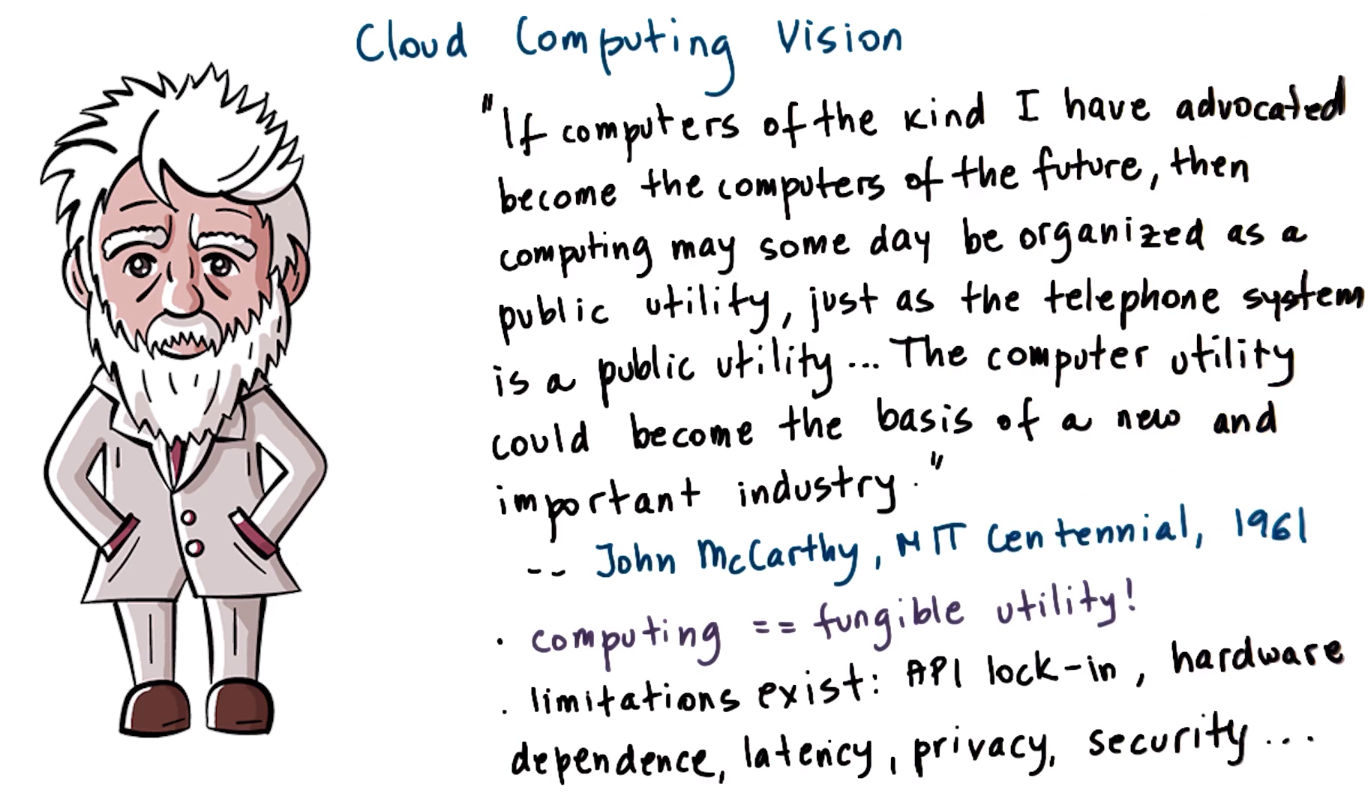 Cloud Computing Vision
"If computers of the kind I have advocated
become the computers of the future, then
computing may some day be organized as a
public utility, just as the telephone system
is a public utility... The computer utility
could become the basis of a new and
important industry."
-- John McCarthy, MIT Centennial, 1961
· computing == fungible utility!
. limitations exist: API lock-in, hardware
dependence, latency, privacy, security...